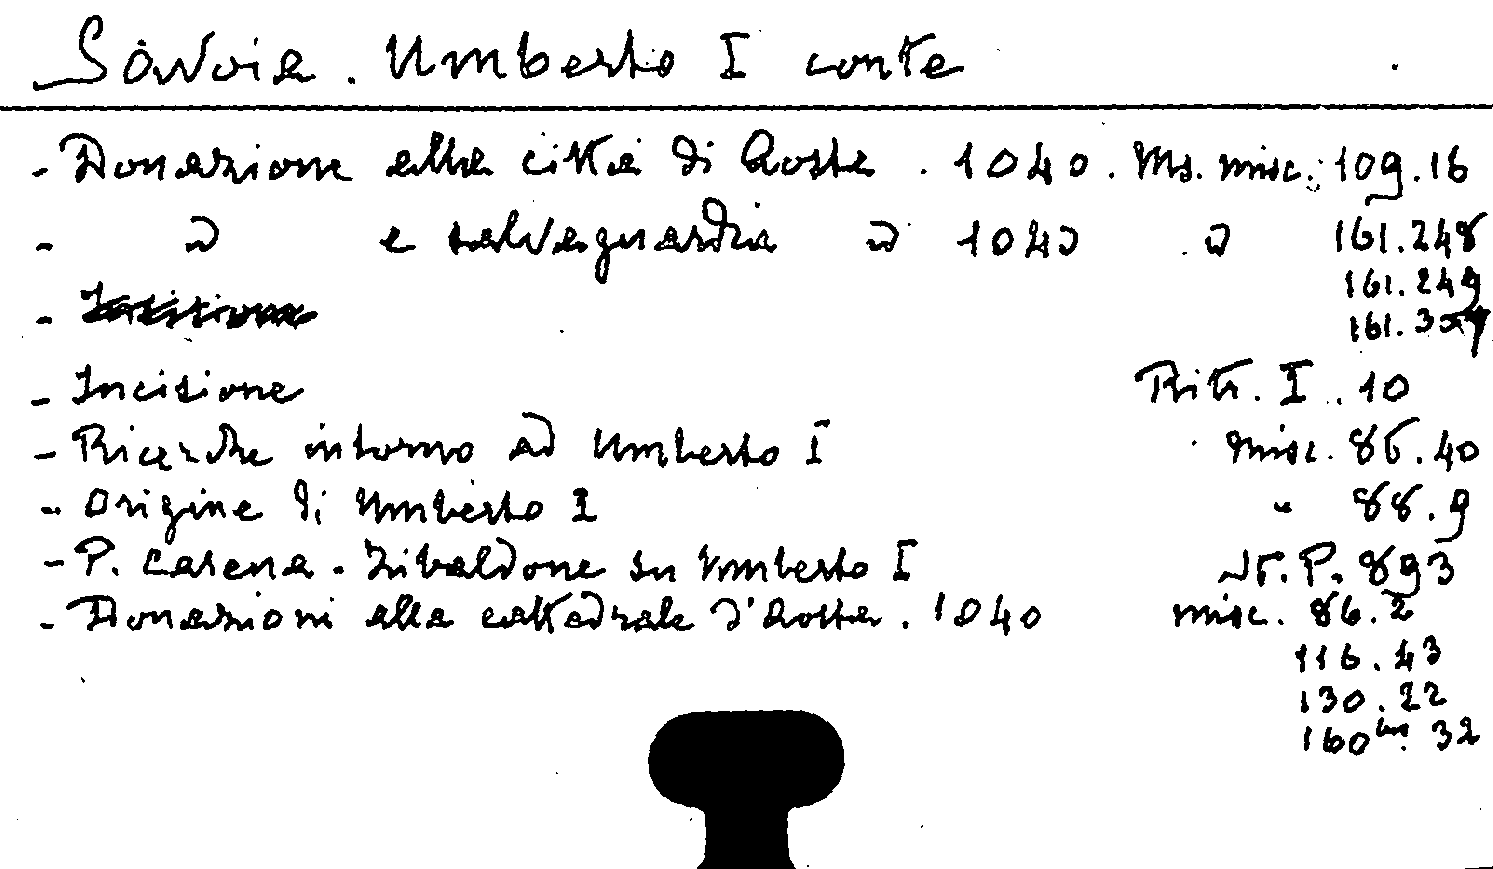 Savoia. Umberto I conte
- Donazione alla città di Aosta. 1040. Ms. misc. 109.16
- " e salvaguardia " 1040 " 161.248
161.249
161.
- Incisione
- Incisione Ritr. I. 10
- Ricerche intorno ad Umberto I misc. 86.40
- Origine di Umberto I " 88.9
- P. Casena - Zibaldone su Umberto I St. P. 893
- Donazioni alla cattedrale d'Aosta. 1040 misc. 86.2
116.43
130.22
160bis. 32